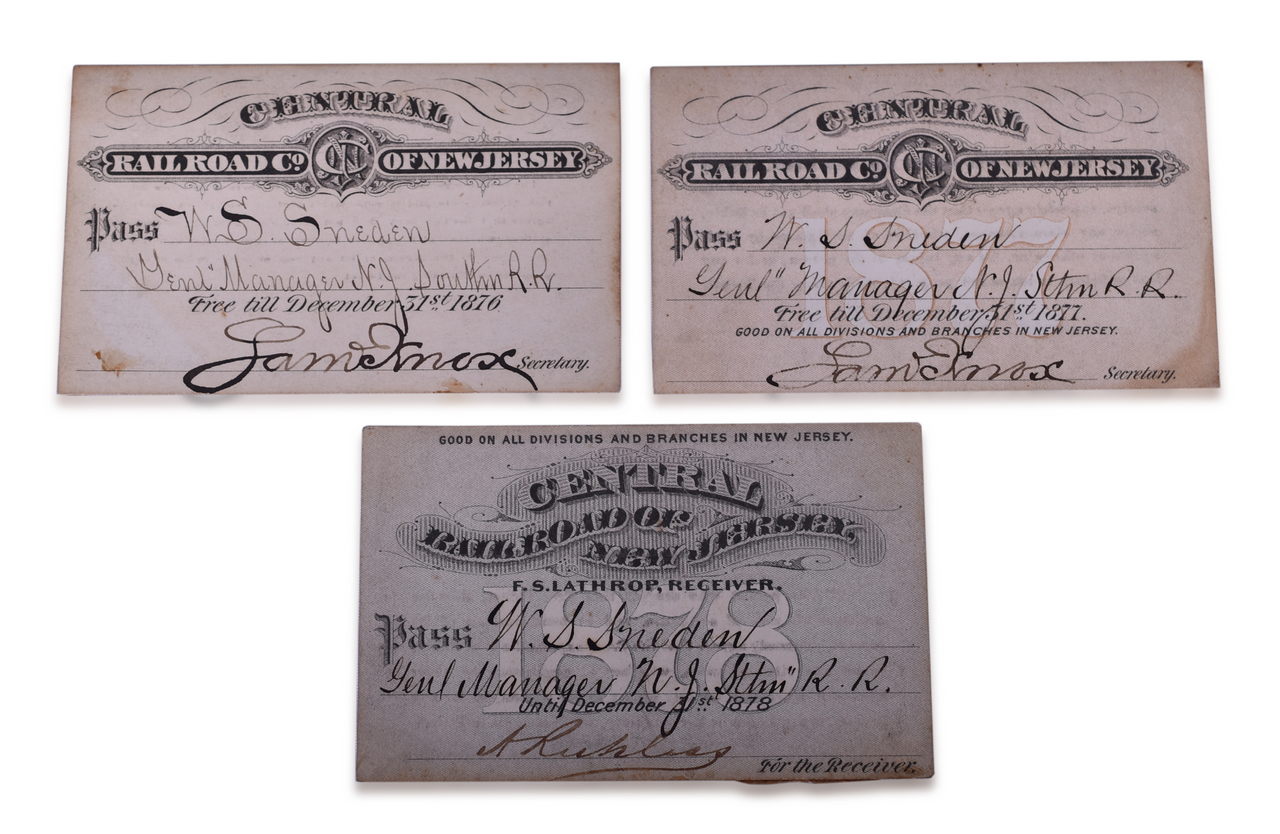 CENTRAL
RAILROAD CO. OF NEW JERSEY
Pass W. S. Sneden
Genl" Manager N. J. Southn R. R.
Free till December 31st 1876
Saml Knox Secretary.
CENTRAL
RAILROAD CO. OF NEW JERSEY
1877
Pass W. S. Sneden
Genl" Manager N. J. Sthn R. R.
Free till December 31st 1877.
GOOD ON ALL DIVISIONS AND BRANCHES IN NEW JERSEY.
Saml Knox Secretary.
GOOD ON ALL DIVISIONS AND BRANCHES IN NEW JERSEY.
CENTRAL
RAILROAD OF
NEW JERSEY,
F. S. LATHROP, RECEIVER.
1878
Pass W. S. Sneden
Genl Manager N. J. Sthn" R. R.
Until December 31st 1878
A Reckless
For the Receiver.